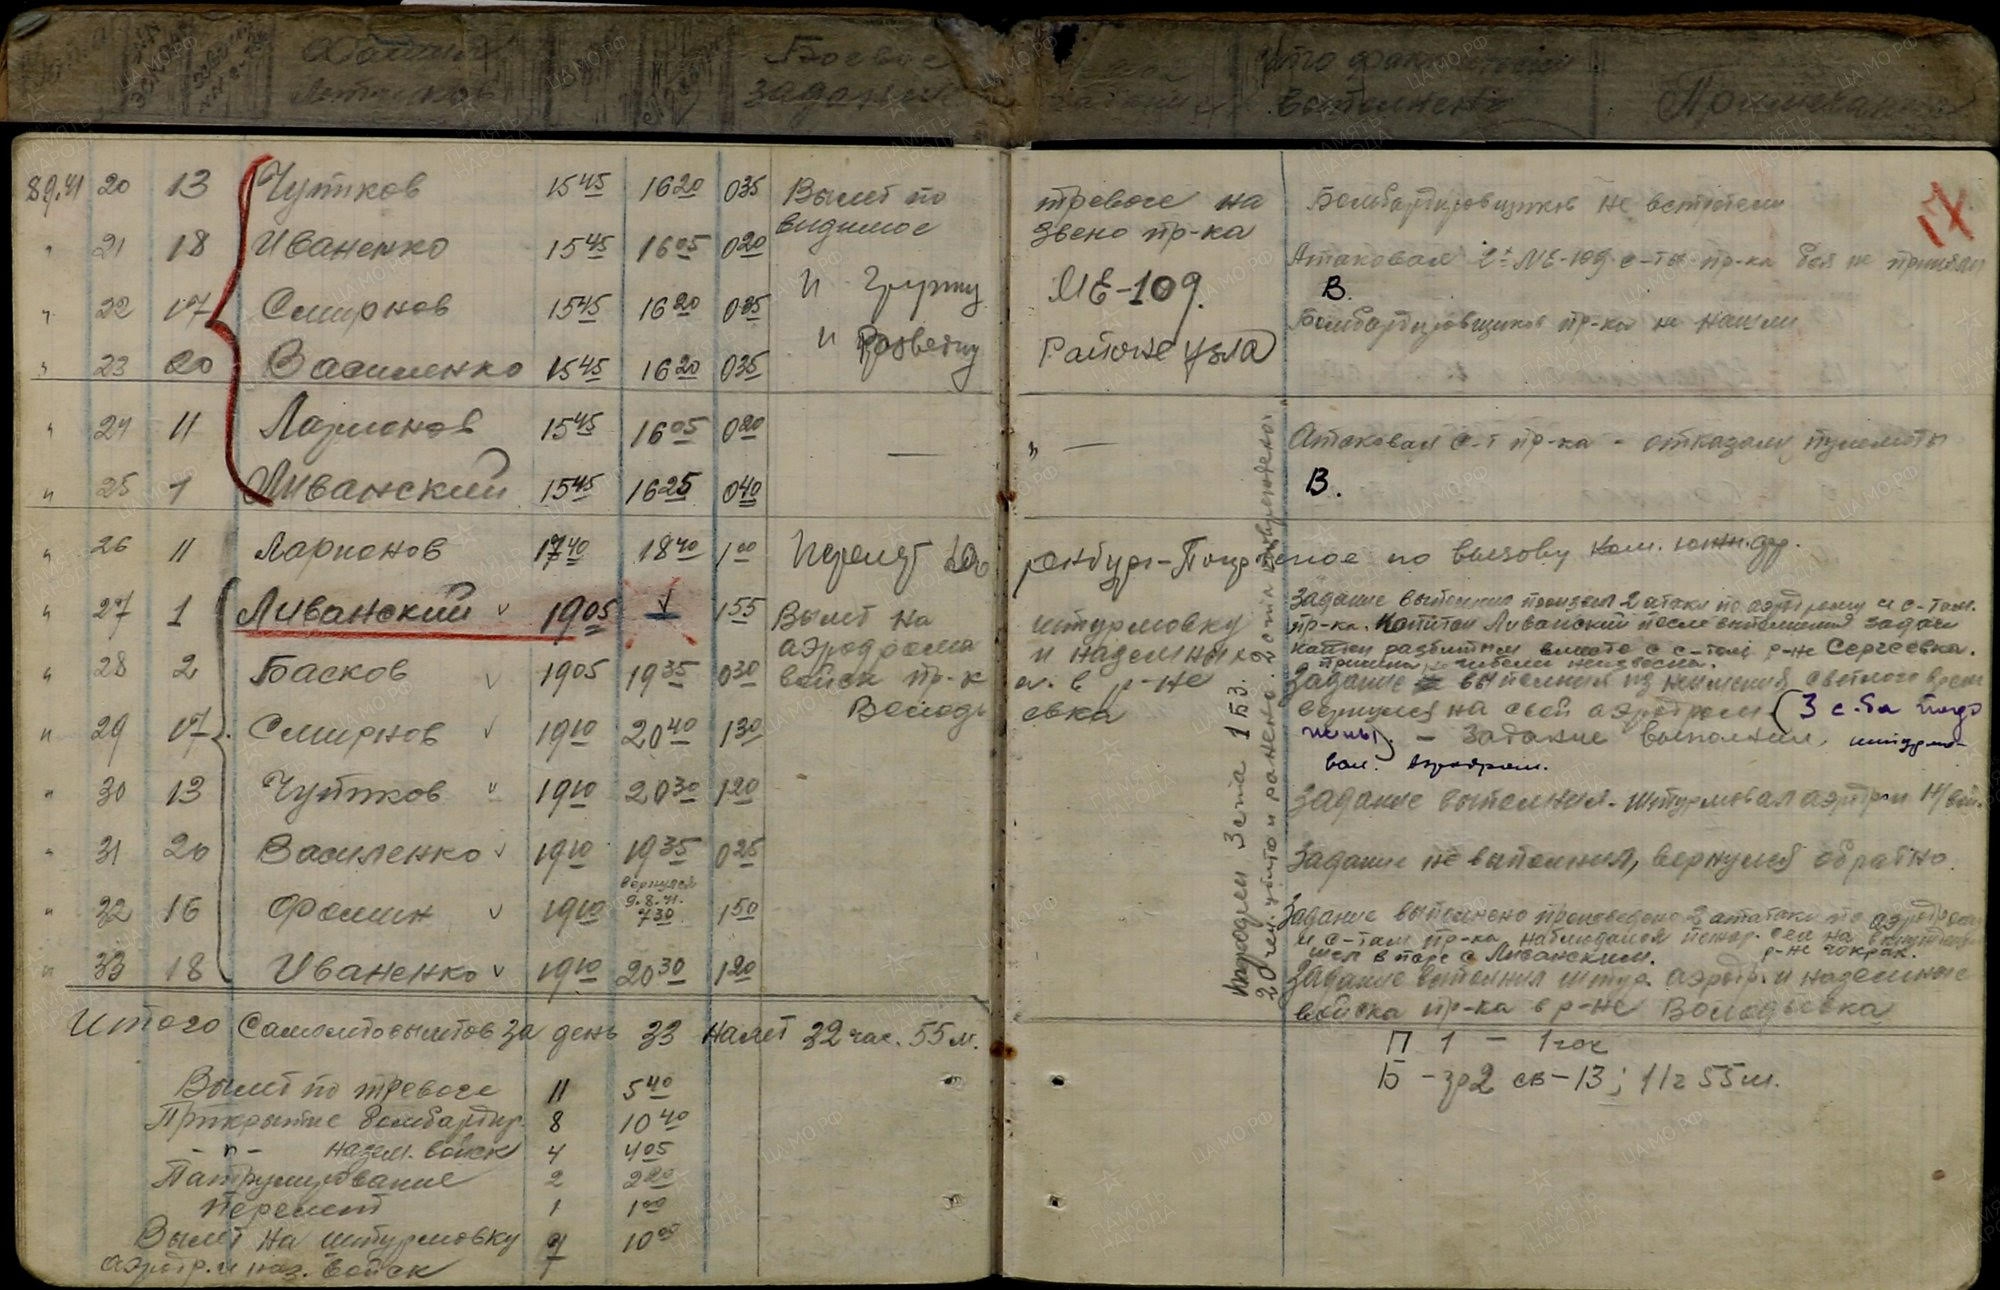 Боевое задание
что фактически выполнено
Примечание
8.9.41 20 13 Чутков 15 45 16 20 0 35 Вылет по тревоге на Бомбардировщиков не встретили
" 21 18 Иваненко 15 45 16 05 0 20 видимое звено пр-ка Атаковал МЕ-109 с-ты пр-ка боя не приняли
В.
" 22 17 Смирнов 15 45 16 20 0 35 и группу МЕ-109. Бомбардировщиков пр-ка не нашли
" 23 20 Василенко 15 45 16 20 0 35 и разведку Районе узла
" 24 11 Ларионов 15 45 16 05 0 20 — " — Атаковал с-т пр-ка - отказали пулеметы
" 25 1 Ливанский 15 45 16 25 0 40 В.
" 26 11 Ларионов 17 40 18 40 1 00 Перелет по вызову ком.
" 27 1 Ливанский v 19 05 1 55 Вылет на штурмовку Задание выполнил произвел 2 атаки по аэродрому и с-там
пр-ка. Капитан Ливанский после выполнения задачи
аэродрома и наземных найден разбитым вместе с с-том р-не Сергеевка.
причина гибели неизвестна.
" 28 2 Басков v 19 05 19 35 0 30 войск пр-к а. в р-не Задание выполнил из
вернулся на свой аэродром (3 с.ба
" 29 17 Смирнов v 19 10 20 40 1 30 Володь евка - Задание выполнил, штурмо-
вал. аэродром.
" 30 13 Чутков v 19 10 20 30 1 20 Задание выполнил. Штурмовал аэрдром н/вой.
" 31 20 Василенко v 19 10 19 35 0 25 Задание не выполнил, вернулся обратно.
" 32 16 Фомин v 19 10 вернулся 9.8.41. 7 30 1 50 Задание выполнено произведено 2 атаки по аэродрому
и с-там пр-ка наблюдался пожар. сел на
шел в паре с Ливанским. р-не Чокрак.
" 33 18 Иваненко v 19 10 20 30 1 20 Задание выполнил штур. аэрдр. и наземные
войска пр-ка в р-не Володьевка
2 чел. убито и ранено. 2 с-та повреждено.
17
Итого самолетовылетов за день 33 налет 32 час. 55 м.
П 1 — 1 час
Б - 2 св - 13; 11 ч 55 м.
Вылет по тревоге 11 5 40
Прикрытие бомбардир. 8 10 40
- " - назем. войск 4 4 05
Патрулирование 2 2 20
Перелет 1 1 00
Вылет на штурмовку 7 10 00
аэродр. и наз. войск